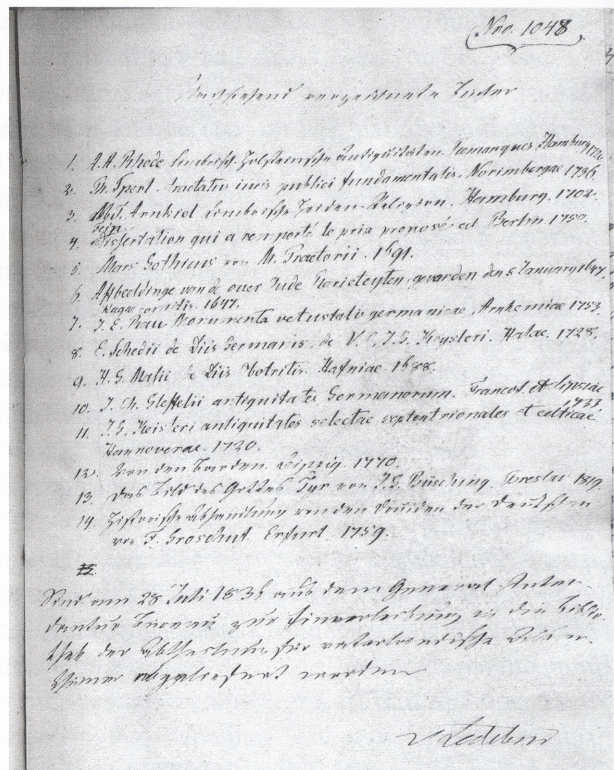 Nro. 1048
Nachstehend verzeichnete Bücher
1. A.A. Rhode Cimbrisch Holsteinsche Antiquitäten Remarques Hamburg 1720
2. Th. Spert. tractatus iuris publici fundamentalis. Norimbergae 1736.
3. M. T. Arnkiel Cimbrische Heiden-Religion. Hamburg. 1702.
4. Dissertation qui a remporté le prix proposé ect Berlin 1750.
5. Mars Gothicus von M. Praetorii. 1691.
6. Affbeeldinge van de ouer Oude gevonden den 5 January 1647
Hagae 1647.
7. J. E. Rau Monumenta vetustatis germanicae. Arnhemiae 1753.
8. E. Schedii de Diis Germanis, de V. C. J. G. Keysleri. Halae. 1728.
9. H. G. Masii de Diis Obotritis. Hafniae. 1688.
10. J. Ch. antiquitates Germanorum. Francof. et Lipsiae
1733
11. J. G. Keisleri antiquitates selectae septentrionales et celticae
Hannoverae. 1720.
12. Von den Barden. Leipzig. 1770.
13. Das Bild des Gottes Tyr von J. G. Büsching. Breslau 1819.
14. Historische Abhandlung von den Druiden der Deutschen
von F. Groschuf. Erfurt. 1759.
Sind am 28 Juli 183 aus dem General-Inten-
dantur Bureau zur Einverleibung in die Biblio-
thek der Abtheilung für vaterländische Alter-
thümer abgeliefert worden
v Ledebur